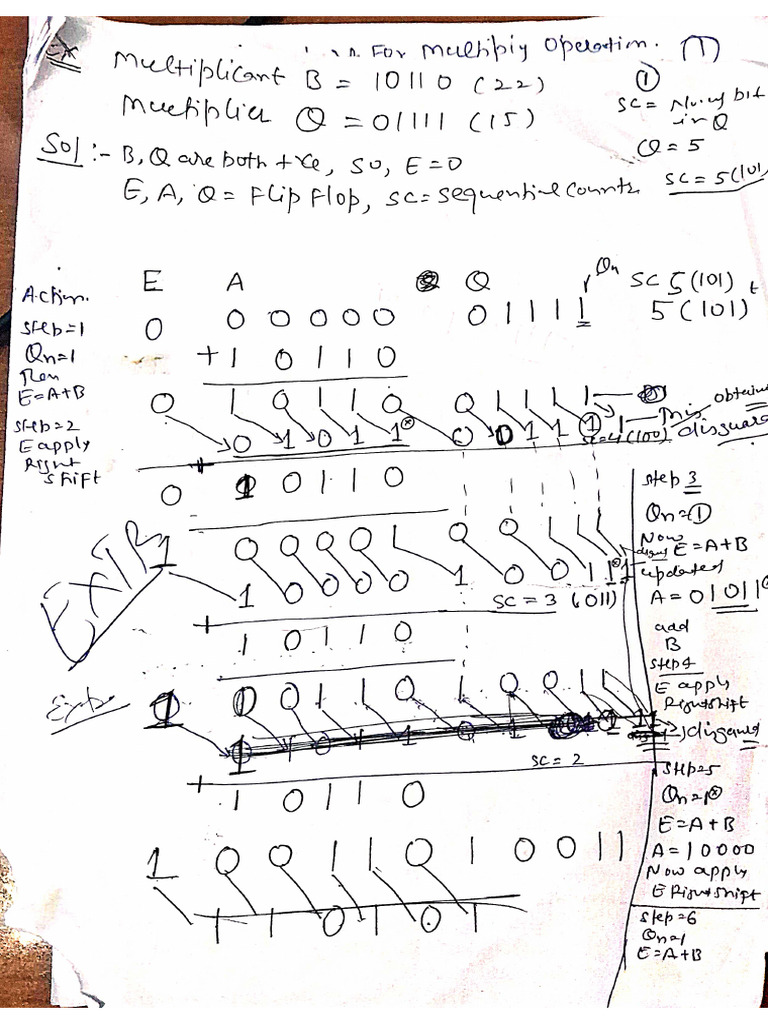 Ex
For Multiply Operation. (1)
Multiplicant B = 10110 (22)
Multiplier Q = 01111 (15)
①
SC = bit
in Q
Q = 5
SC = 5(101)
Sol :- B, Q are both +ve, so, E=0
E, A, Q = Flip Flop, SC = sequential Counter
Action. E A Q Qn SC 5(101)
step=1 0 0 0 0 0 0 0 1 1 1 1 5(101)
Qn=1 + 1 0 1 1 0
Then
E=A+B
0 1 0 1 1 0 0 1 1 1 1
This obtained
step=2
E apply
Right
shift
0 1 0 1 1 0 0 1 1 1 1 disguard
SC=4(100)
+
0 1 0 1 1 0
EXTR
1 0 0 0 0 1 0 0 1 1
1 0 0 0 0 1 0 0 1 1 1
SC = 3 (011)
+ 1 0 1 1 0
Extra 1 0 0 1 1 0 1 0 0 1 1
1
disguard
SC = 2
+ 1 0 1 1 0
1 0 0 1 1 0 1 0 0 1 1
1 1 0 1 0 1
step 3
Qn=①
Now
E=A+B
updated
A = 01011
add
B
step 4
E apply
Rightshift
step=5
Qn=1
E=A+B
A=10000
Now apply
E Rightshift
step=6
Qn=1
E=A+B